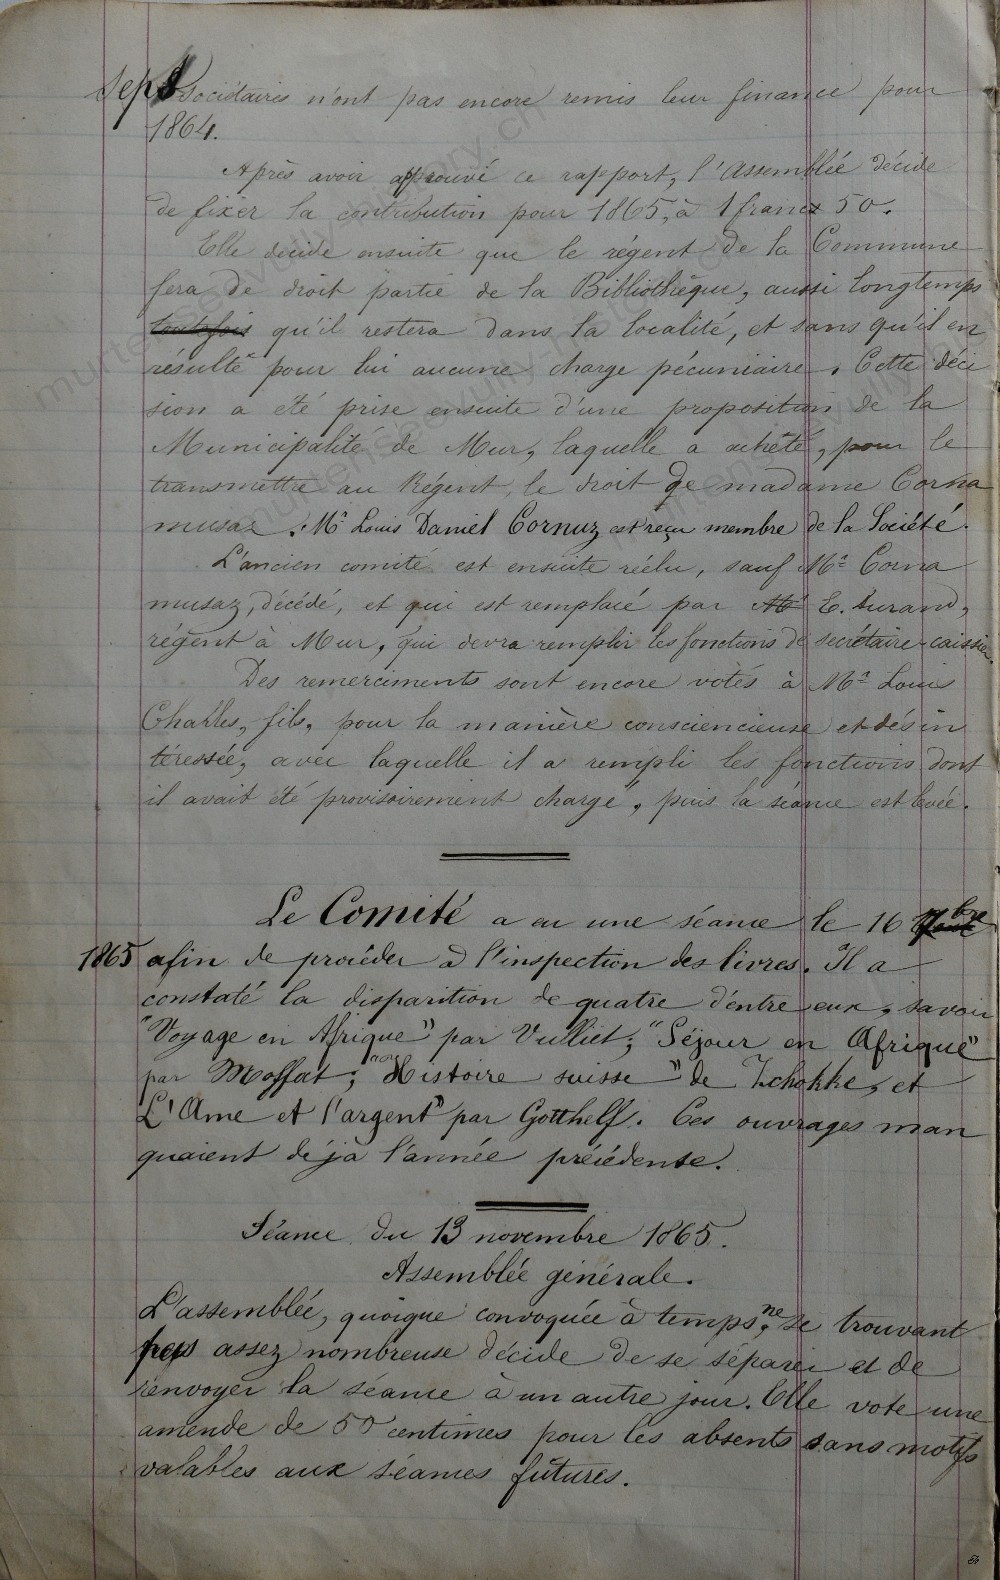 sept sociétaires n'ont pas encore remis leur finance pour
1864.
Après avoir approuvé ce rapport, l'Assemblée décide
de fixer la contribution pour 1865, à 1 franc 50.
Elle décide ensuite que le régent de la Commune
fera de droit partie de la Bibliothèque, aussi longtemps
toutefois qu'il restera dans la localité, et sans qu'il en
résulte pour lui aucune charge pécuniaire. Cette déci
sion a été prise ensuite d'une proposition de la
Municipalité de Mur, laquelle a acheté, pour le
transmettre au Régent, le droit de madame Corna
musaz. Mr Louis Daniel Cornuz est reçu membre de la Société.
L'ancien comité est ensuite réélu, sauf Mr Corna
musaz, décédé, et qui est remplacé par Mr E. Durand,
régent à Mur, qui devra remplir les fonctions de secrétaire-caissier.
Des remerciments sont encore votés à Mr Louis
Charles, fils, pour la manière consciencieuse et désin
téressée, avec laquelle il a rempli les fonctions dont
il avait été provisoirement chargé, puis la séance est levée.
Le Comité a eu une séance le 16
1865 afin de procéder à l'inspection des livres. Il a
constaté la disparition de quatre d'entre eux, savoir
"Voyage en Afrique" par Vulliet; "Séjour en Afrique"
par Moffat; "Histoire suisse" de Zchokke, et
L'Ame et l'argent" par Gotthelf. Ces ouvrages man
quaient déjà l'année précédente.
Séance du 13 novembre 1865.
Assemblée générale.
L'assemblée, quoique convoquée à temps, ne se trouvant
pas assez nombreuse décide de se séparer et de
renvoyer la séance à un autre jour. Elle vote une
amende de 50 centimes pour les absents sans motifs
valables aux séances futures.